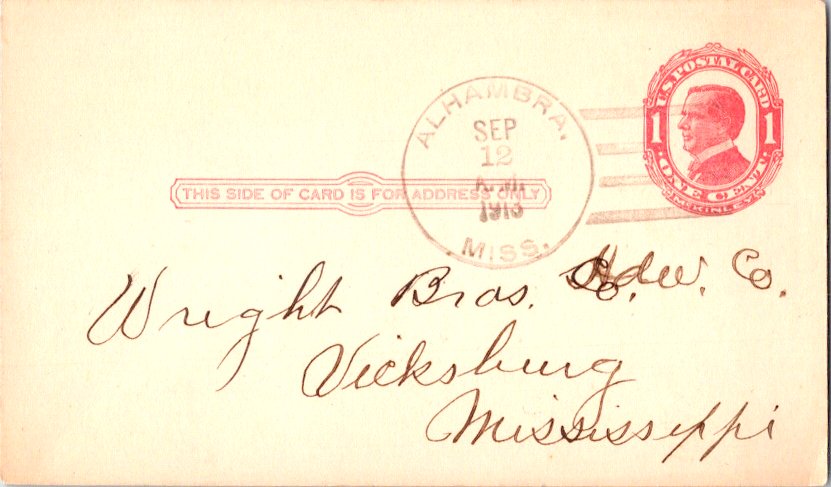 U.S. POSTAL CARD
1 1
ONE CENT
ALHAMBRA,
SEP
12
A.M.
1913
MISS.
THIS SIDE OF CARD IS FOR ADDRESS ONLY
Wright Bros. Hdw. Co.
Vicksburg
Mississippi